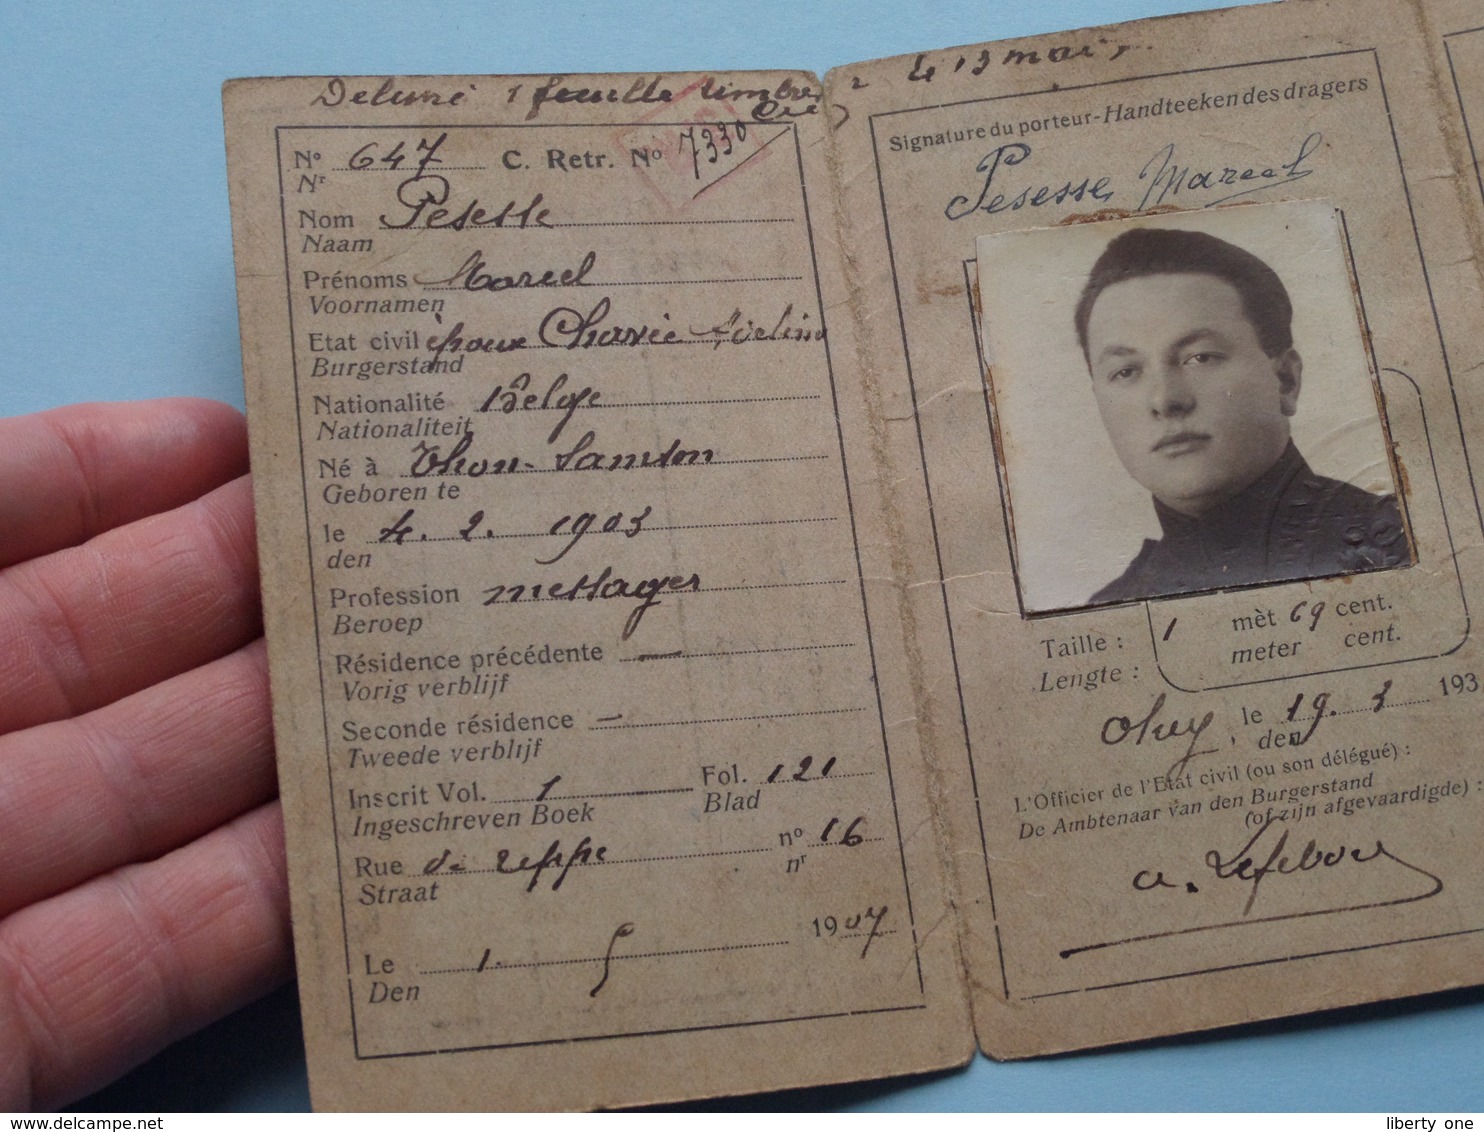 Délivré 1 feuille timbres
le 13 mai
N° 647 C. Retr. N° 7330
Nr
Nom Pesesse
Naam
Prénoms Marcel
Voornamen
Etat civil époux Chavée
Burgerstand
Nationalité Belge
Nationaliteit
Né à Thon-Samson
Geboren te
le 4. 2. 1903
den
Profession messager
Beroep
Résidence précédente —
Vorig verblijf
Seconde résidence —
Tweede verblijf
Inscrit Vol. 1 Fol. 121
Ingeschreven Boek Blad
Rue de n° 16
Straat nr
Le 1. 5 1907
Den
Signature du porteur - Handteeken des dragers
Pesesse Marcel
Taille : 1 mèt 69 cent.
Lengte : meter cent.
Ohey, le 19. 3 193
den
L'Officier de l'Etat civil (ou son délégué) :
De Ambtenaar van den Burgerstand
(of zijn afgevaardigde) :
a. Lefebvre
www.delcampe.net
liberty one